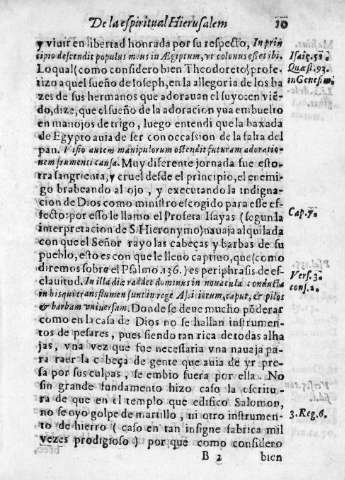 De la espiritual Hierusalem 10
y viuir en libertad honrada por su respecto, In prin
cipio descendit populus meus in Ægiptum, vt colonus esset ibi.
Lo qual (como considero bien Theodoreto) profe-
tizo aquel sueño de Ioseph, en la allegoria de los ha
zes de sus hermanos que adorauan el suyo: en vien
do, dize, que el sueño de la adoracion yua embuelto
en manojos de trigo, luego entendi que la baxada
de Egypto auia de ser con occasion de la falta del
pan. Visio autem manipulorum ostendit futuram adoratio-
nem frumenti causa. Muy diferente jornada fue esto-
tra sangrienta, y cruel desde el principio, el enemi-
go brabeando al ojo, y executando la indigna-
cion de Dios como ministro escogido para esse ef-
fecto: por esso le llamo el Profeta Isayas (segun la
interpretacion de S. Hieronymo) nauaja alquilada
con que el Señor rayo las cabeças y barbas de su
pueblo, esto es con que le lleuo captiuo, que (como
diremos sobre el Psalmo. 136.) es periphrasis de es-
clauitud. In illa die radet dominus in nouacula conducta
in his qui trans flumen sunt in rege Assiriorum, caput, & pilos
& barbam vniuersam. Donde se deue mucho põderar
como en la casa de Dios no se hallan instrumen-
tos de pesares, pues siendo tan rica de todas alha
jas, vna vez que fue necessaria vna nauaja pa-
ra raer la cabeça de gente que auia de yr pre-
sa por sus culpas, se embio fuera por ella. No
sin grande fundamento hizo caso la escritu-
ra de que en el templo que edifico Salomon,
no se oyo golpe de martillo, ni otro instrumen-
to de hierro (caso en tan insigne fabrica mil
vezes prodigioso) por que como considero
B 2 bien
Isaiæ. 52.
Quæst. 93.
in Genesim.
Cap. 7.
Vers. 3.
cons. 2.
3. Reg. 6.